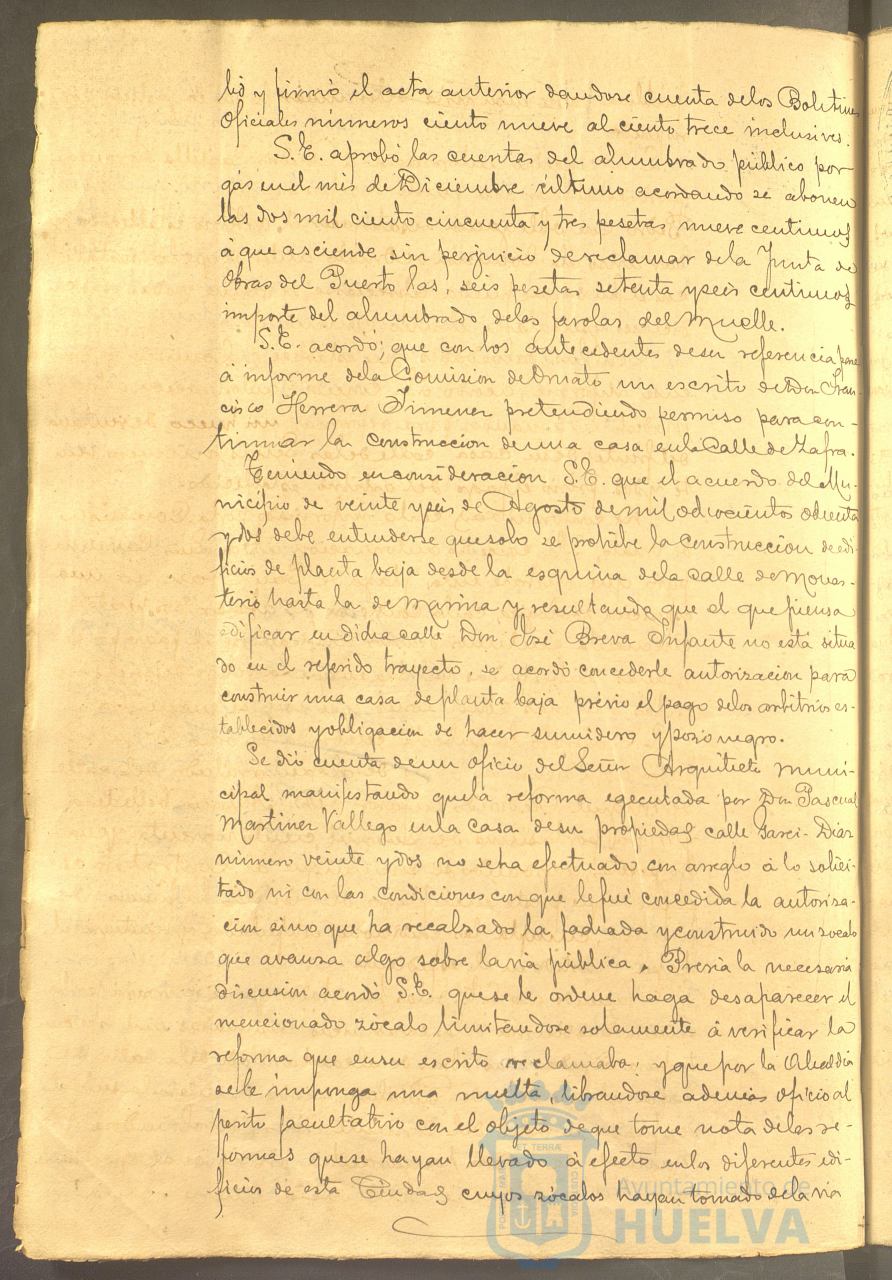 bió y firmó el acta anterior dandose cuenta delos Boletines
Oficiales números ciento nueve al ciento trece inclusives.
S.E. aprobó las cuentas del alumbrado público por
gas en el mes de Diciembre último acordando se abonen
las dos mil ciento cincuenta y tres pesetas nueve centimos
á que asciende sin perjuicio de reclamar dela Junta de
Obras del Puerto las, seis pesetas setenta y seis centimos
importe del alumbrado delas farolas del Muelle.
S.E. acordó; que con los antecedentes desu referencia pase
á informe dela Comision de Ornato un escrito de Don Fran-
cisco Herrera Jimenez pretendiendo permiso para con-
tinuar la construccion de una casa en la Calle de Zafra.
Teniendo en consideracion S.E. que el acuerdo del Mu-
nicipio de veinte y seis de Agosto de mil ochocientos ochenta
y dos debe entenderse que solo se prohibe la construccion de edi-
ficios de planta baja desde la esquina dela calle de Monas-
terio hasta la de Marina y resultando que el que piensa
edificar en dicha calle Don José Breva Infante no está situa
do en el referido trayecto, se acordó concederle autorizacion para
construir una casa de planta baja prévio el pago delos arbitrios es-
tablecidos y obligacion de hacer sumidero y pozo negro.
Se dió cuenta de un oficio del Señor Arquitecto muni-
cipal manifestando que la reforma egecutada por Don Pascual
Martinez Vallego en la casa desu propiedad calle Garci-Diaz
número veinte y dos no se ha efectuado con arreglo á lo solici-
tado ni con las condiciones con que le fué concedida la autoriza-
cion sino que ha recalzado la fachada y construido un zocalo
que avanza algo sobre la via pública. Prévia la necesaria
discusion acordó S.E. que se le ordene haga desaparecer el
mencionado zócalo limitandose solamente á verificar la
reforma que en su escrito reclamaba; y que por la Alcaldia
se le imponga una multa, librandose además oficio al
perito facultativo con el objeto de que tome nota delas re-
formas que se hayan llevado á efecto en los diferentes edi-
ficios de esta Ciudad cuyos zócalos hayan tomado dela via
Ayuntamiento de
HUELVA